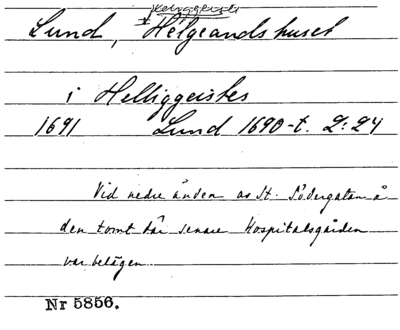 Helggeistes
Lund, *Helgeandshuset
i Helliggeistes
1691 Lund 1690-t. L: 24
Vid nedre änden av St. Södergatan å
den tomt där senare Hospitalsgården
var belägen.
Nr 5856.